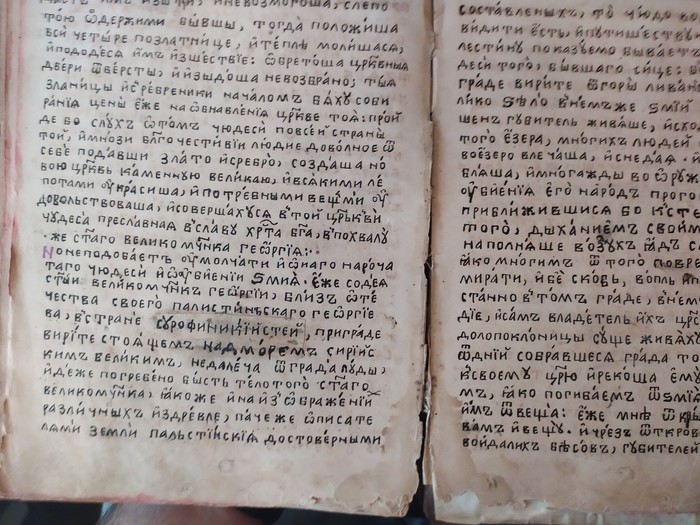 тою ѡ҆держими бывшы, тогда положиша
вси четыре позлатницѣ, и҆теплѣ молишася,
и҆подадеся и҆мъ и҆зшествїе: ѡ҆брѣтоша цр҃квныя
двери ѿверсты, и҆и҆зыдоша невозбрано; тыя
златницы и҆сребреники началомъ бяху соби
ранїя цены є҆же на ѡ҆бнавленїя цр҃кве тоя: прой
де бо слухъ ѡ҆томъ чюдеси повсей странѣ
той, и҆мнози бл҃гочестивїи людие доволное ѿ
себе подавши злато и҆сребро, создаша но
вою цр҃ковь каменную великаю, и҆всякими лѣ
потами оу҆красиша, и҆потребными вещми оу҆
доволствоваша, и҆совершахуся в҆той цр҃ькви
чудеса преславная в҆славу хр҃та бг҃а, в҆похвалу
же ст҃аго великому҃нка геѡргїя:
Но неподобаетъ оу҆молчати и҆ѡ҆наго нароча
таго чюдеси и҆ѡ҆убиении ѕмия. є҆же содея
ст҃ыи великому҃нкъ геѡргїи, близъ ѡ҆те
чества своего палистинѣскаго геѡргїе
ва, в҆стране сурофиникїистей, приграде
вирите стоящемъ надморемъ сирїис
кимъ великимъ, недалеча ѿграда луды,
и҆деже погребено бысть тѣло того ст҃аго
великому҃нка, ꙗ҆коже и҆на и҆зѡ҆бражении
различныхъ и҆здревле, паче же ѡ҆писате
лями земли пальстїнскїя достоверными
составленыхъ, то чюдо
видити єсть, и҆путишеству
лестину показуемо бываетъ
деси того, бывшаго сице:
граде вирите ѿгоры ливан
лико ѕѣло в҆немъже ѕмїй
шенъ губитель живяше, и҆схо
того є҆зера, многихъ людей
воє҆зеро влечаша, и҆снедая.
бляша, и҆многажды во ѡ҆руж
оу҆биения є҆го народъ прого
приближившися бо к҆сте
того, дыханиемъ своим
наполняше воздухъ ꙗ҆дъ с
ꙗ҆ко многимъ ѿ того повре
мирати, и҆бѣ скорбь, вопль и҆п
станно в҆томъ граде, в҆нем
дїе, и҆самъ владетель и҆хъ цр҃
долопоклонницы суще живях
ѿднїй собравшеся града то
к҆своему цр҃ю и҆рекоша є҆му
мъ, ꙗ҆ко погибаемъ ѿѕмїя
и҆мъ ѿвеща: є҆же мне ѿкры
вамъ и҆вещу. и҆чрезъ ѿткров
войдалихъ бѣсовъ, губителей